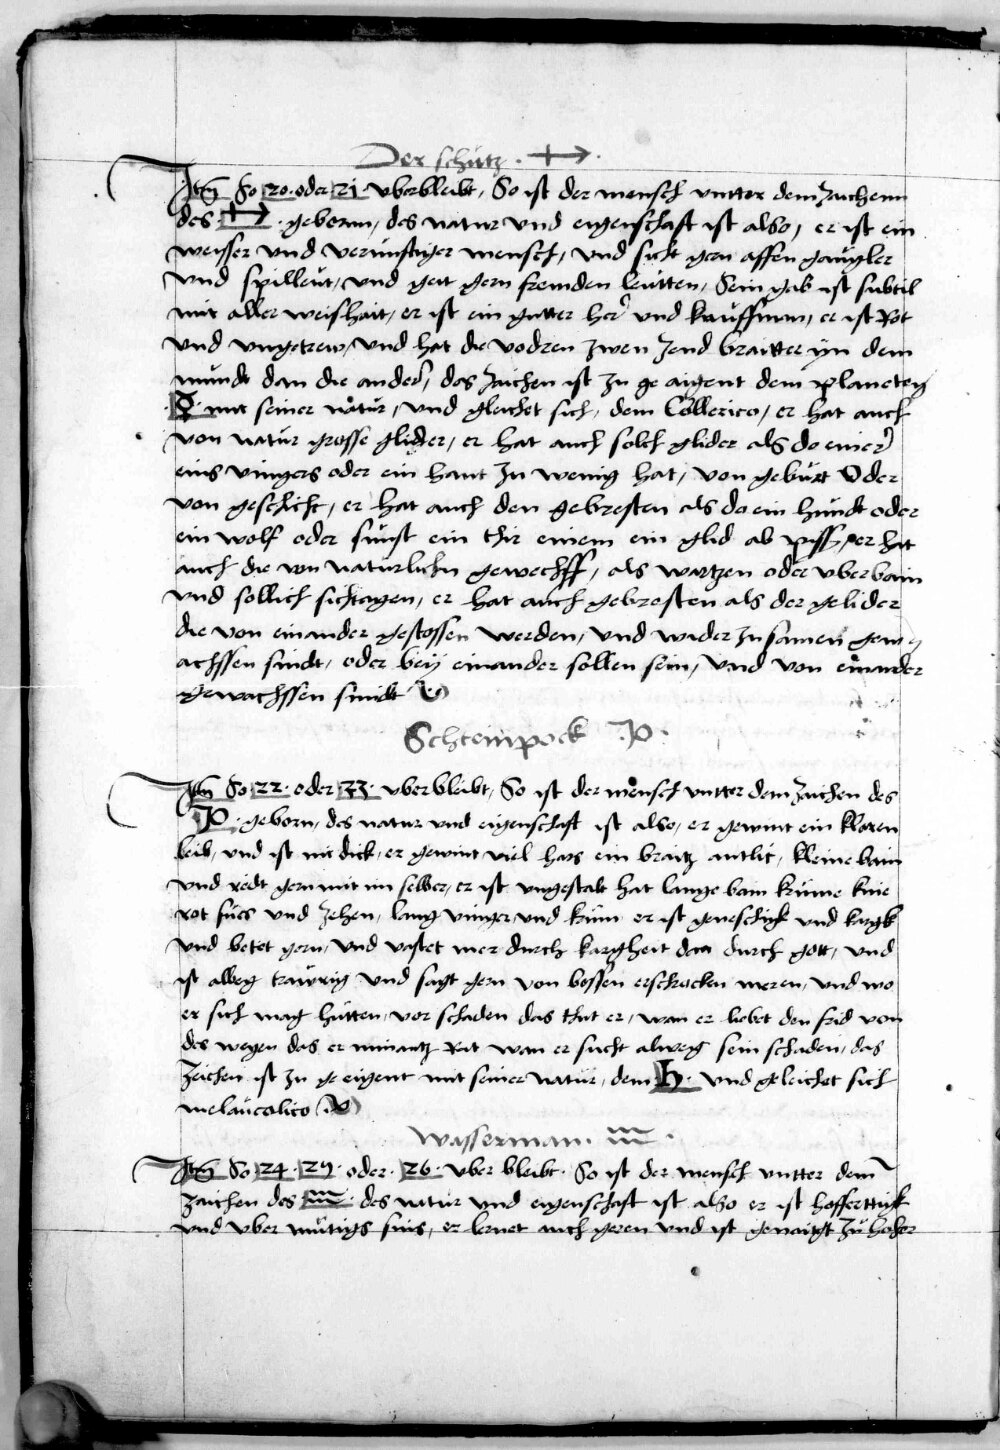 Der schutz · ♐ ·
Itm So 20 · oder 21 · vberbleibt, So ist der mensch vntter dem Zaichenn
des · ♐ · geborn, des natur vnd eigenschaft ist also, er ist ein
weysser vnd vernunftiger mensch, vnd sicht gern affen gaugler
vnd spilleut, vnd geit gern fremden leutten, Sein gab ist subtil
mit aller weishait, er ist ein gutter her vnd kauffman, er ist Rot
vnd vngetrew, vnd hat die vodren zwen zend braitter yn dem
mundt dan die ander, das zaichen ist zu ge aigent dem planeten
· ☿ · mit seiner natur, vnd gleichet sich, dem Collerico, er hat auch
von natur grosse glider, er hat auch solch glider als do einer
eins vingers oder ein hant zu wenig hat, von geburt Oder
von geschicht, er hat auch den gebresten als do ein hundt oder
ein wolf oder sunst ein thir einem ein glid ab piss, er hat
auch die vnnaturlichn gewechss, als wartzen oder vberbain
vnd sollich sichtagen, er hat auch gebresten als der gelider
die von einander gestossen werden, vnd wider zu samen gew
achssen sindt, oder bey einander sollen sein, vnd von einander
gewachssen sindt
Schteinpock ♑ ·
Itm So 22 · oder 23 · vberbleibt, So ist der mensch vntter dem zaichen des
♑ · geborn, des natur vnd eigenschaft ist also, er gewint ein kloren
leib, vnd ist nit dick, er gewint viel hars ein braitz antlit, kleine bain
vnd redt gern mit im selber, er ist vngestalt hat lange bain krume knie
rot fues vnd zehen, lang vinger, vnd krum er ist geneschick vnd kargk
vnd betet gern, vnd vastet mer durch kargheit dan durch gott, vnd
ist alweg traurig vnd sagt gern von bossen erschrocken meren, vnd wo
er sich mag hutten, vor schaden das thut er, wan er liebet den frid von
des wegen das er nimantz rat wan er sucht alweg sein schaden, das
zeichen ist zu ge eigent mit seiner natur, dem ♄ · vnd geleichet sich
melancolico
Wasserman · ♒ ·
Itm So 24 · 25 · oder · 26 · vber bleibt · So ist der mensch vntter dem
zaichen des ♒ · des natur vnd eigenschaft ist also er ist hofferttigk
vnd vber mutigs sins, er lernet auch geren vnd ist genaigt zu hoher